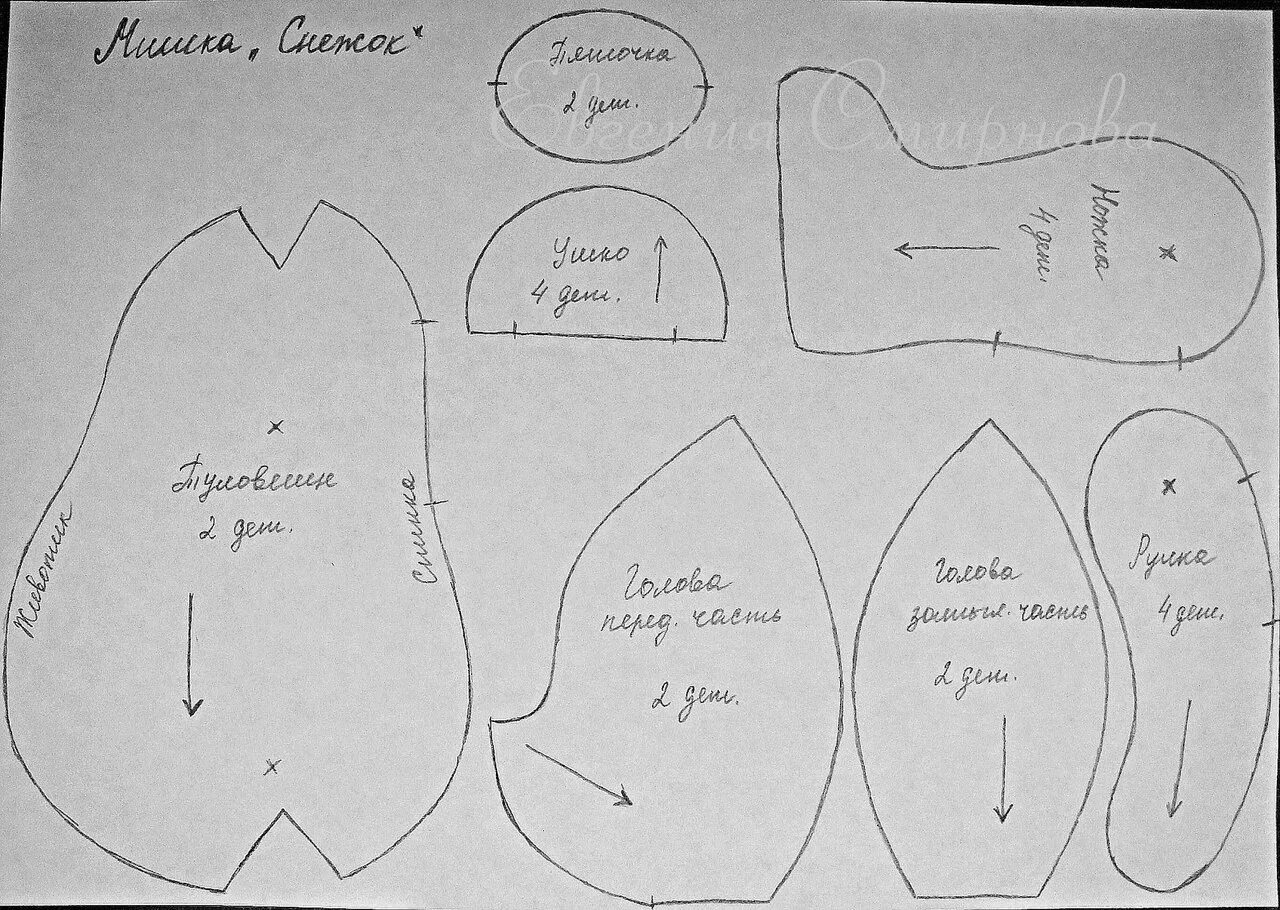 Мишка „Снежок"
Пяточка
2 дет.
Евгения Смирнова
Ушко
4 дет.
Ножка
4 дет.
Туловищ
2 дет.
Животик
Спинка
Голова
перед. часть
2 дет.
Голова
затыл. часть
2 дет.
Ручка
4 дет.